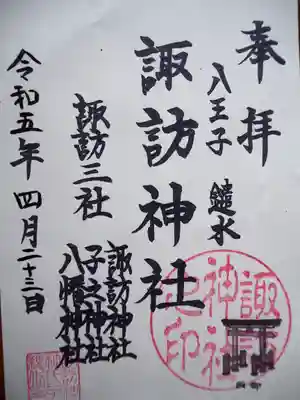 奉拝
八王子 鑓水
諏訪神社
諏訪三社
諏訪神社
子之神社
八幡神社
令和五年 四月二十三日
諏訪神社之印